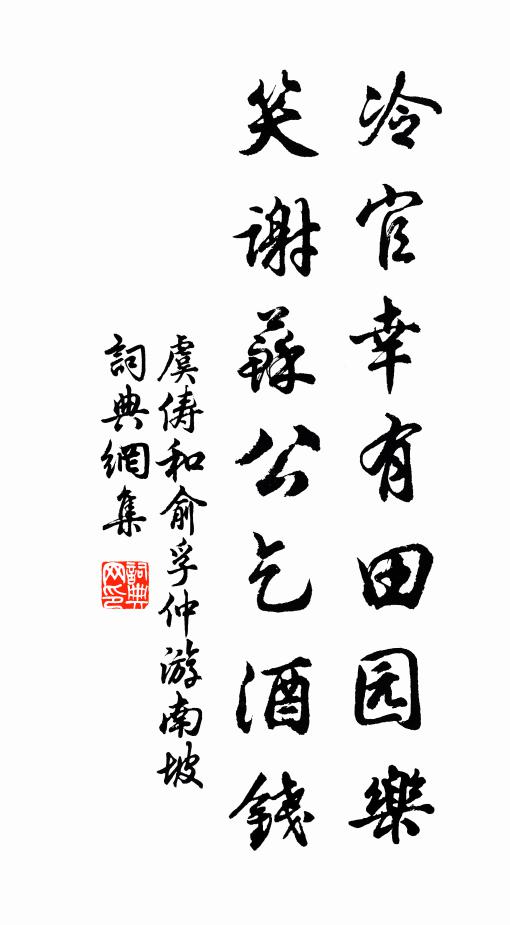 冷官幸有田园樂
笑謝蘇公乞酒錢
虞儔和俞孚仲游南坡
詞典網集
詞典网印